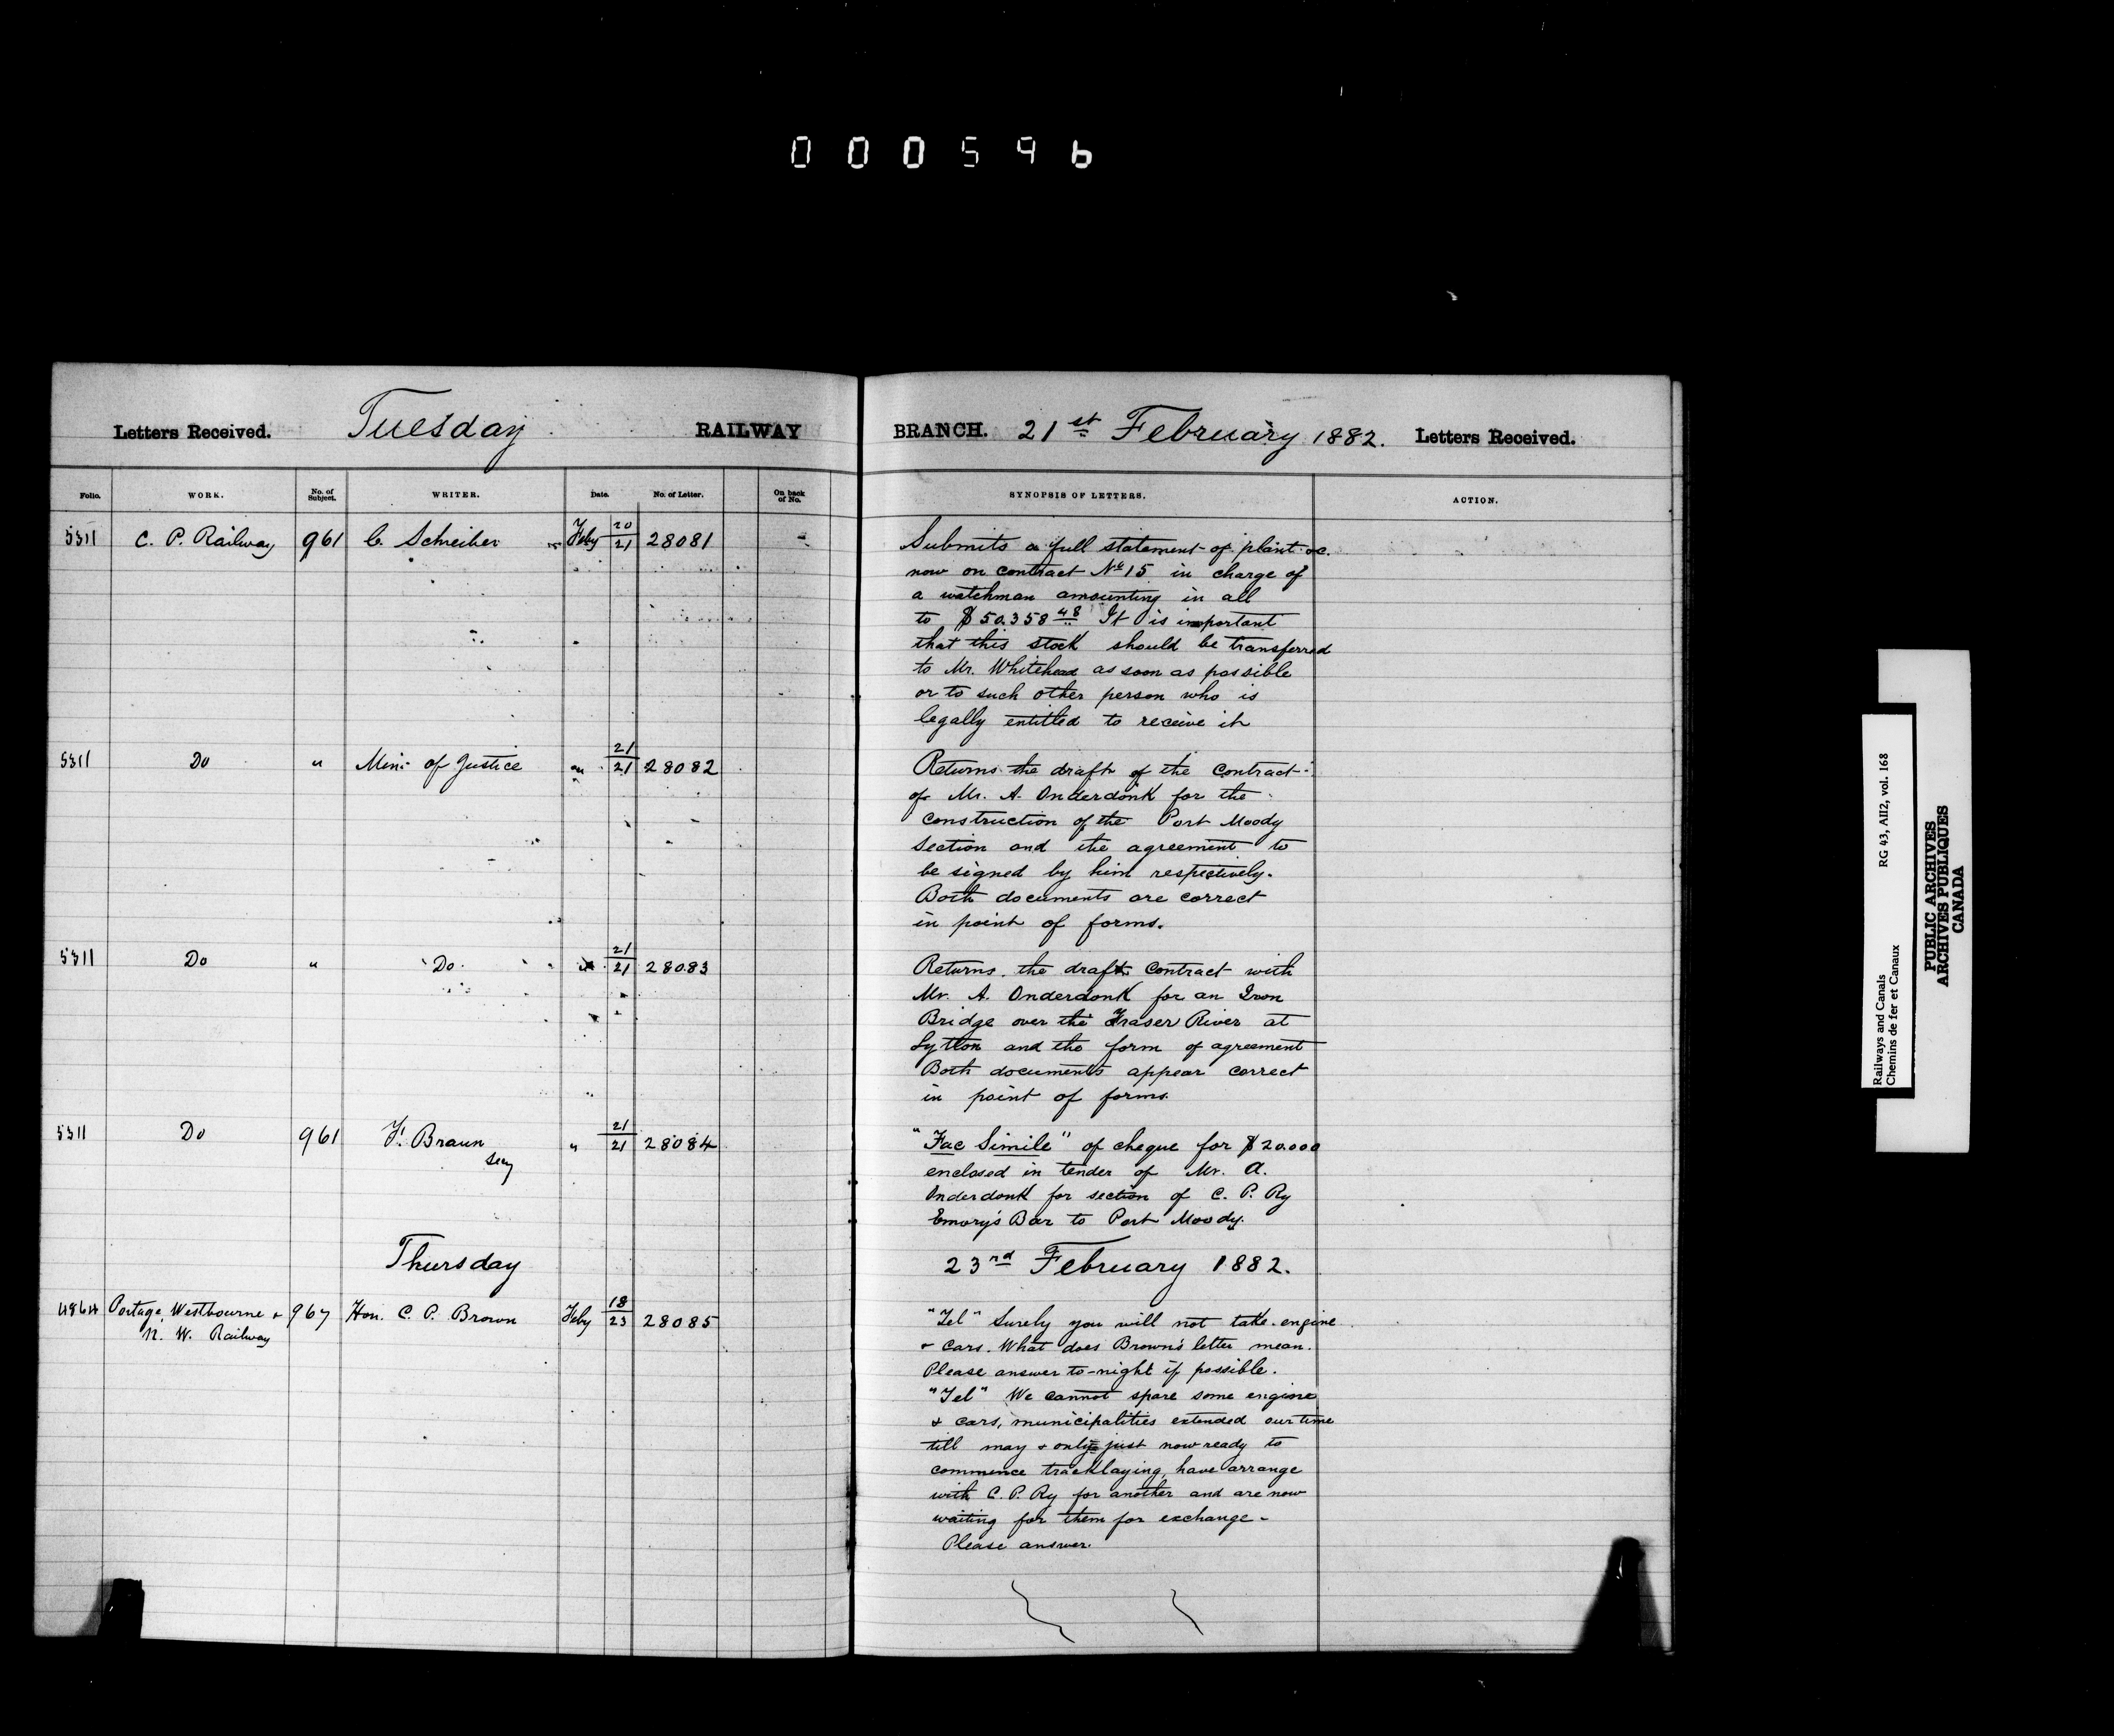 000596
Letters Received. Tuesday RAILWAY BRANCH. 21st February 1882. Letters Received.
Folio. WORK. No. of Subject. WRITER. Date. No. of Letter. On back of No. SYNOPSIS OF LETTERS. ACTION.
5311 C. P. Railway 961 C. Schreiber Feby 20/21 28081
Submits a full statement of plant &c.
now on contract No 15 in charge of
a watchman amounting in all
to $50.358 48 It is important
that this stock should be transferred
to Mr. Whitehead as soon as possible
or to such other person who is
legally entitled to receive it
5311 Do " Min. of Justice " 21/21 28082
Returns the draft of the contract
of Mr. A. Onderdonk for the
construction of the Port Moody
Section and the agreement to
be signed by him respectively.
Both documents are correct
in point of forms.
5311 Do " Do " 21/21 28083
Returns the draft contract with
Mr. A. Onderdonk for an Iron
Bridge over the Fraser River at
Lytton and the form of agreement
Both documents appear correct
in point of forms.
5311 Do 961 F. Braun Secy " 21/21 28084
"Fac Simile" of cheque for $20.000
enclosed in tender of Mr. A.
Onderdonk for section of C. P. Ry
Emory's Bar to Port Moody.
Thursday 23rd February 1882.
4864 Portage, Westbourne & N. W. Railway 967 Hon. C. P. Brown Feby 18/23 28085
"Tel" Surely you will not take engine
& cars. What does Brown's letter mean.
Please answer to-night if possible.
"Tel" We cannot spare some engine
& cars, municipalities extended our time
till may & only just now ready to
commence tracklaying, have arrange
with C. P. Ry for another and are now
waiting for them for exchange -
Please answer.
Railways and Canals RG 43, AII2, vol. 168
Chemins de fer et Canaux
PUBLIC ARCHIVES
ARCHIVES PUBLIQUES
CANADA